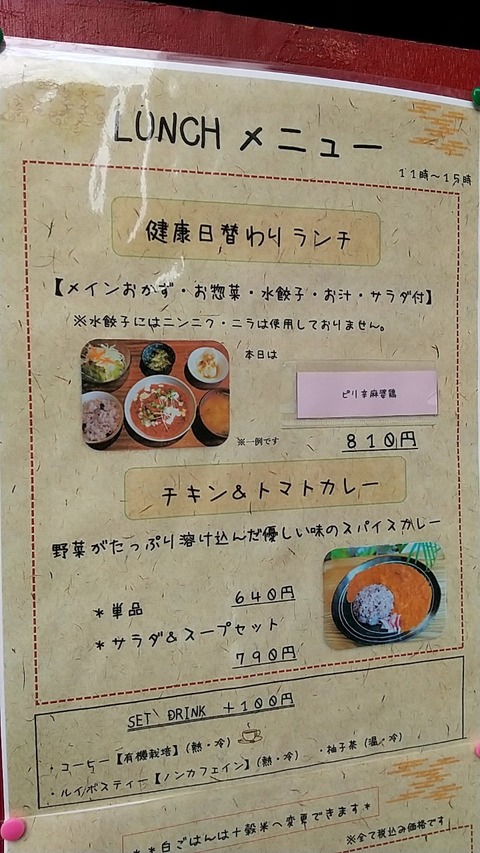 LUNCH メニュー
11時～15時
健康日替わりランチ
【メインおかず・お惣菜・水餃子・お汁・サラダ付】
※水餃子にはニンニク・ニラは使用しておりません。
本日は
ピリ辛麻婆鶏
※一例です
810円
チキン&トマトカレー
野菜がたっぷり溶け込んだ優しい味のスパイスカレー
*単品 640円
*サラダ&スープセット
790円
SET DRINK +100円
・コーヒー【有機栽培】(熱・冷)
・ルイボスティー【ノンカフェイン】(熱・冷) ・柚子茶(温・冷)
**白ごはんは十穀米へ変更できます*
※全て税込み価格です